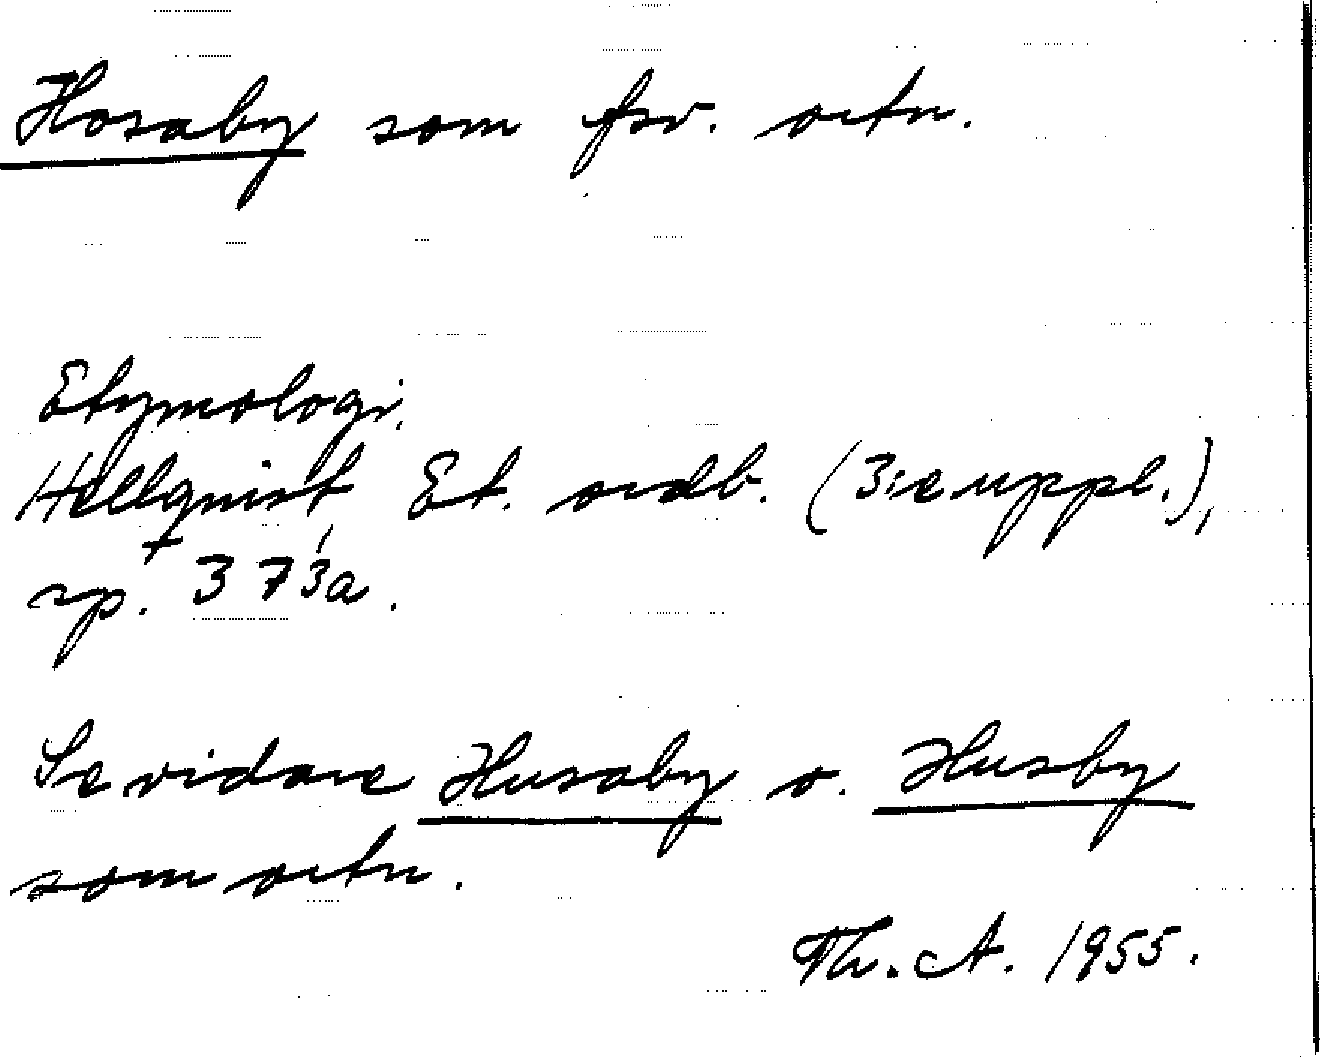 Hosaby som fsv. ortn.
Etymologi.
Hellquist, Et. ordb. (3:e uppl.),
sp. 373a.
Se vidare Husaby o. Husby
som ortn.
Th. A. 1955.